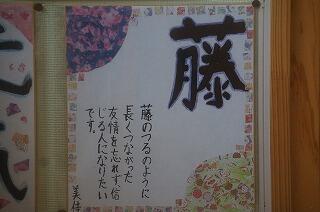 藤
藤のつるのように
長くつながった
友情を忘れず、信
じる人になりたい
です。